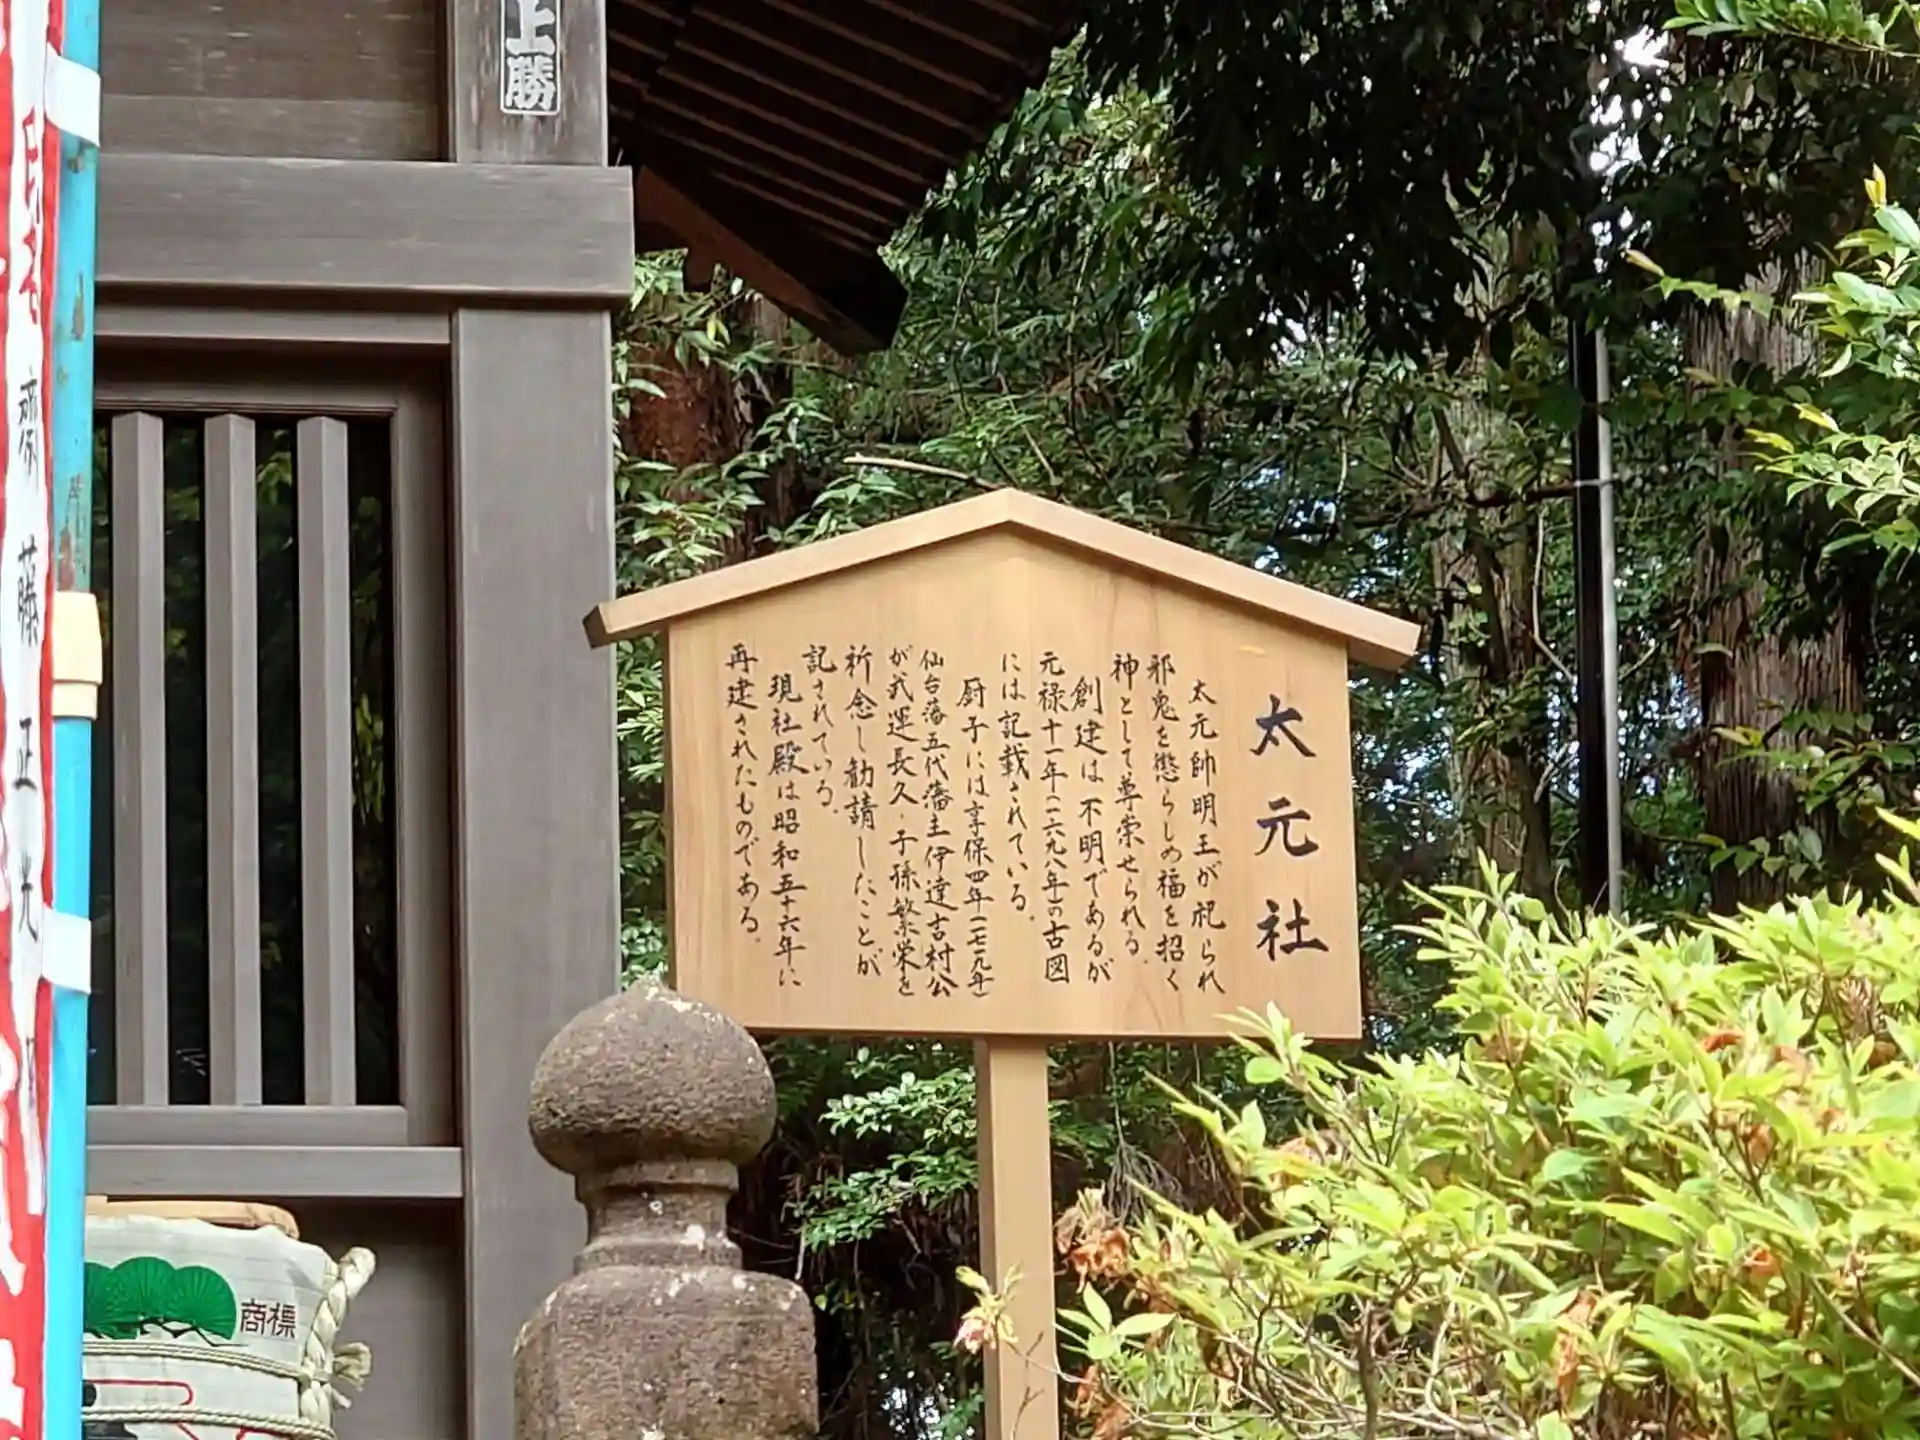 太元社
太元帥明王が祀られ
邪鬼を懲らしめ福を招く
神として尊崇せられる。
創建は不明であるが
元禄十一年(一六九八年)の古図
には記載されている。
厨子には享保四年(一七一九年)
仙台藩五代藩主伊達吉村公
が武運長久・子孫繁栄を
祈念し勧請したことが
記されている。
現社殿は昭和五十六年に
再建されたものである。
上勝
齋藤正光
商標